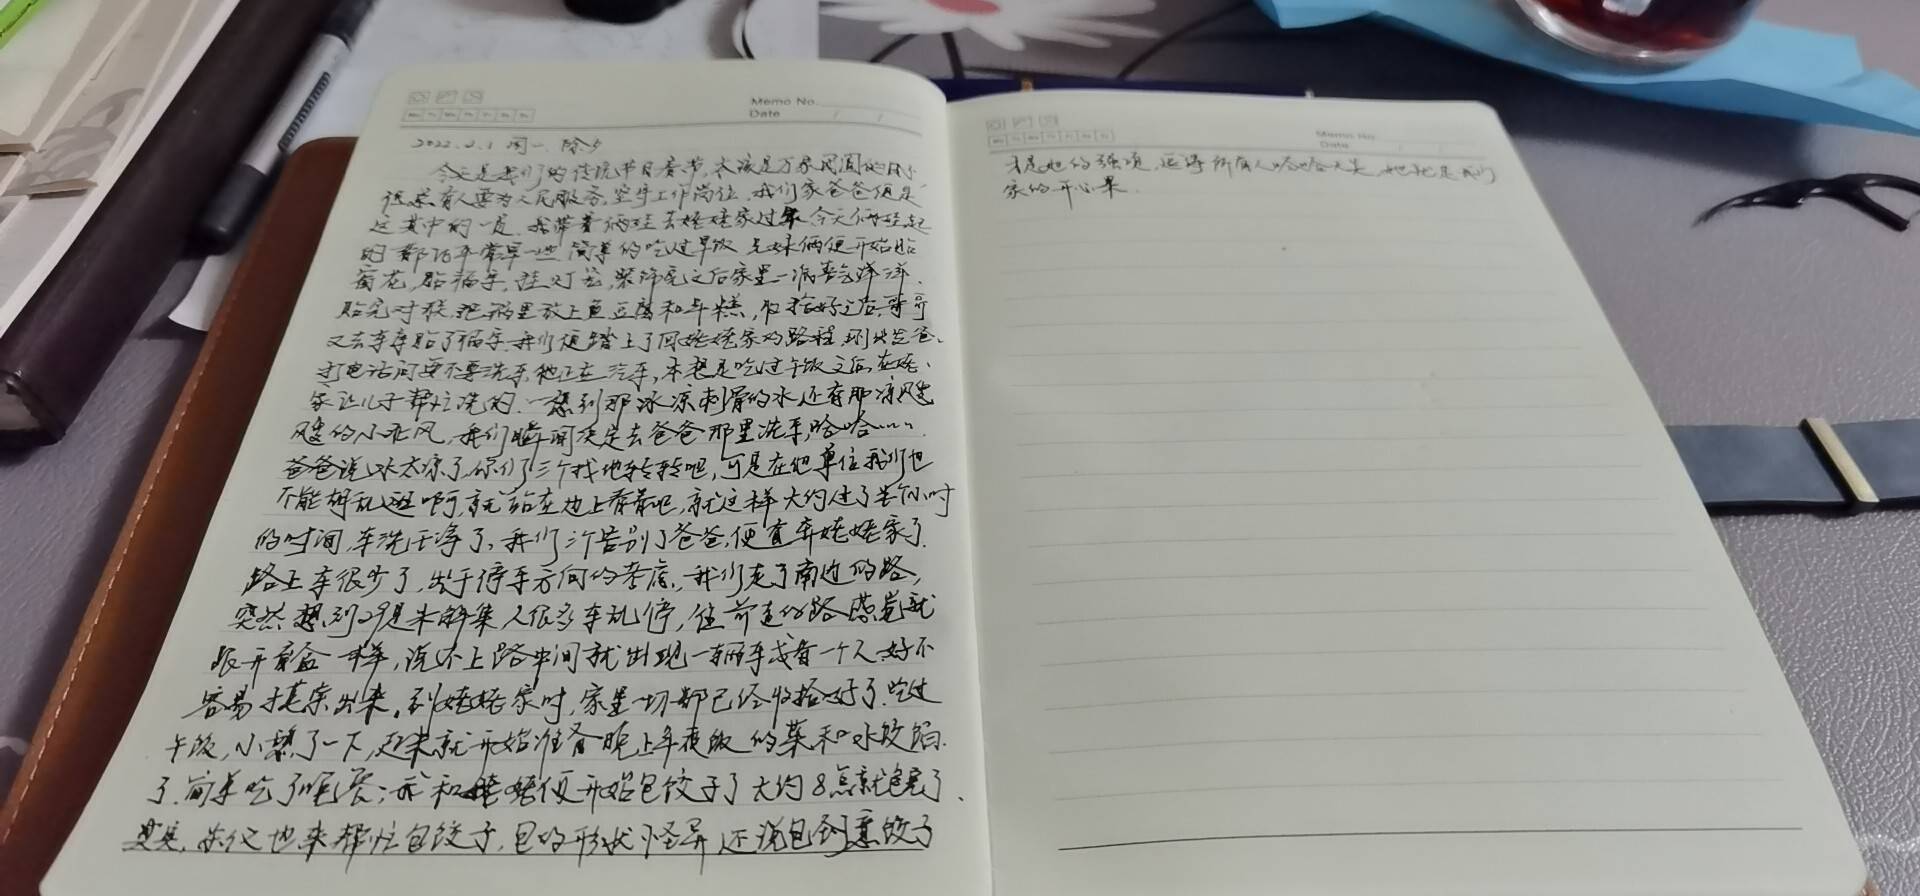 Memo No.
Date
2022.2.1 周一 除夕
今天是我们的传统节日春节，本该是万家团圆的时
但总有人要为人民服务，坚守工作岗位，我们家爸爸便是
这其中的一员，我带着俩娃去姥姥家过年 今天俩娃起
的都比平常早一些 简单的吃过早饭 兄妹俩便开始贴
窗花，贴福字，挂灯笼，装饰完之后家里一派喜气洋洋，
贴完对联，把锅里放上鱼豆腐和年糕，收拾好之后，哥哥
又去车库贴了福字，我们便踏上了回姥姥家的路程，刚出发爸、
打电话问要不要洗车，他正在 汽车，本想是吃过午饭之后在姥、
家让儿子帮忙洗的，一想到那冰凉刺骨的水还有那凉飕
飕的小北风，我们瞬间决定去爸爸那里洗车，哈哈……
爸爸说水太凉了，你们三个找地转转吧，可是在他单位我们也
不能胡乱逛啊，就站在边上看着吧，就这样大约过了半个小时
的时间，车洗干净了，我们三个告别了爸爸，便直奔姥姥家了，
路上车很少了，出于停车方向的考虑，我们走了南边的路，
突然想到29是朱解集，人很多车乱停，往前走的路感觉就
跟开盲盒一样，说不上路中间就出现一辆车或者一个人，好不
容易才摸索出来，到姥姥家时，家里一切都已经收拾好了，吃过
午饭，小憩了一下，起来就开始准备晚上年夜饭的菜和水饺馅
了，简单吃了晚餐，我和姥姥便开始包饺子了 大约8点就包完了、
昊昊，依依也来帮忙包饺子，包的形状怪异 还说包创意饺子
Memo No.
Date
才是她的强项，逗得所有人哈哈大笑，她就是我们
家的开心果.